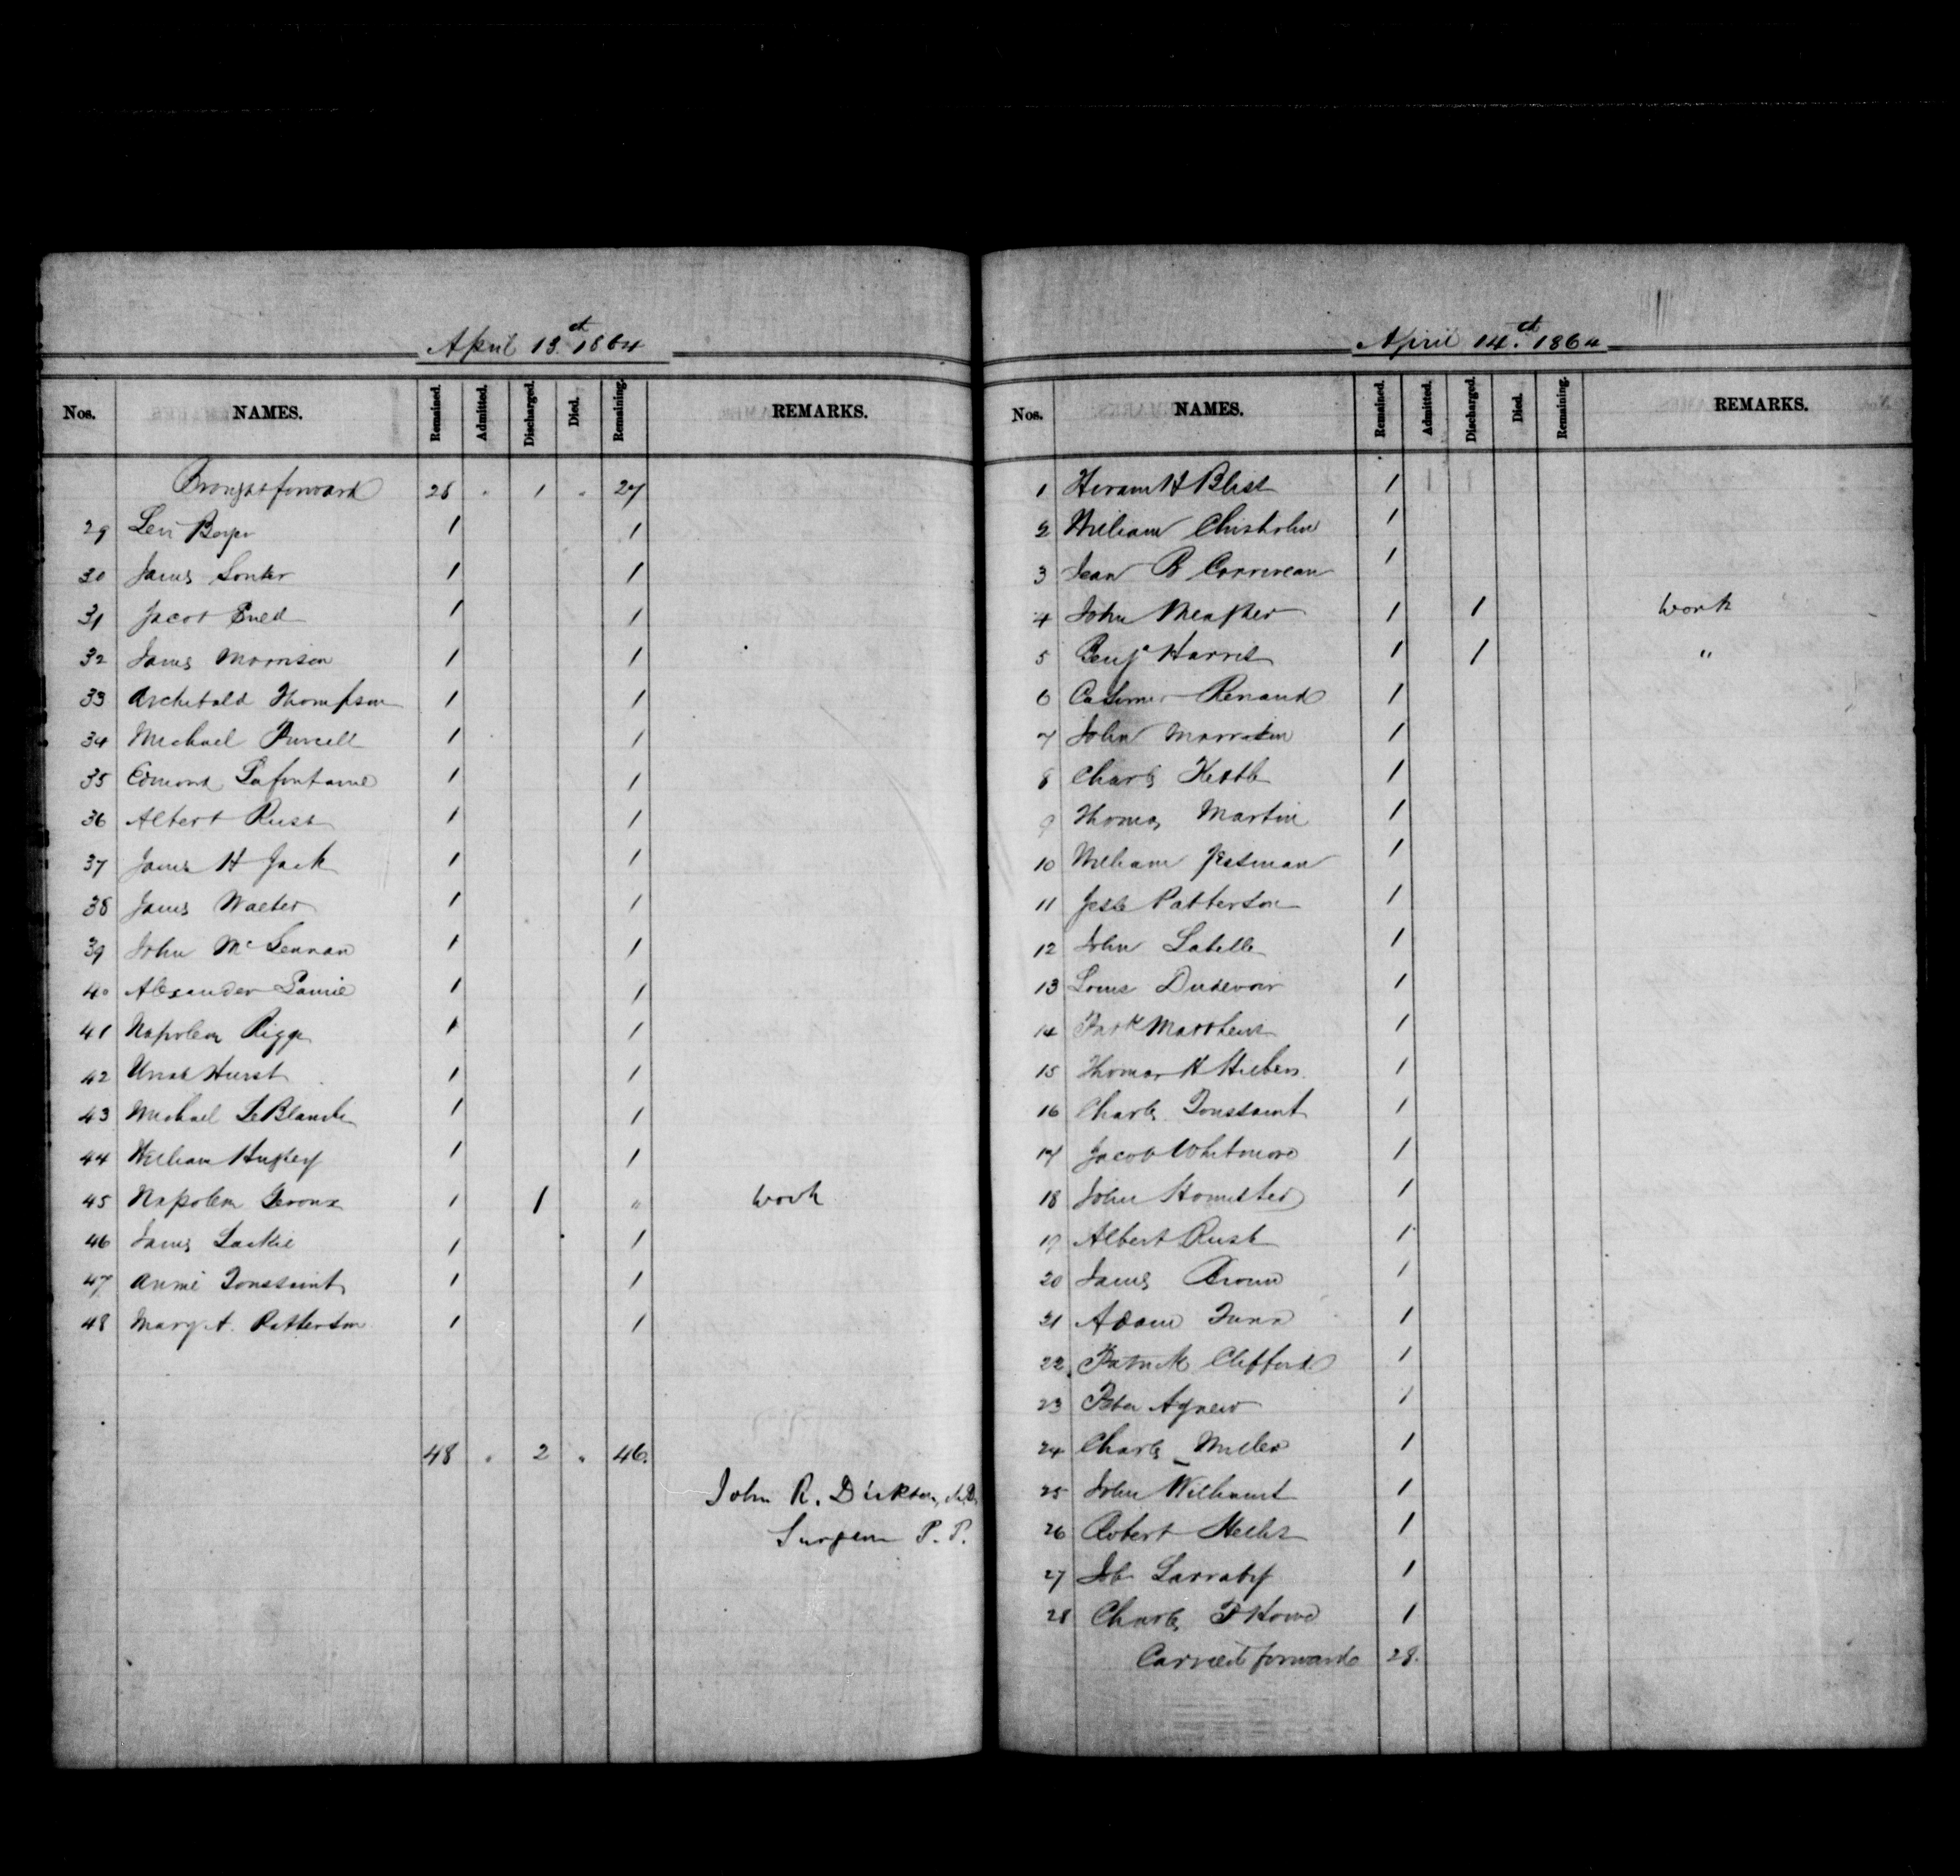 April 13th 1864
Nos. NAMES. Remained. Admitted. Discharged. Died. Remaining. REMARKS.
Brought forward 28 " 1 " 27
29 Levi Boyer 1 1
30 James Souter 1 1
31 Jacob 1 1
32 James Morrison 1 1
33 Archibald Thompson 1 1
34 Michael Purcell 1 1
35 Edmond Lafontaine 1 1
36 Albert Russ 1 1
37 James H Jack 1 1
38 James Walter 1 1
39 John McLennan 1 1
40 Alexander 1 1
41 Napoleon Riggs 1 1
42 Uriah Hurst 1 1
43 Michael LeBlanche 1 1
44 William Hughey 1 1
45 Napoleon Geroux 1 1 " work
46 James Lackie 1 1
47 Annie Toussaint 1 1
48 Mary A. Patterson 1 1
48 " 2 " 46.
John R. Dickson, M.D.
Surgeon P. P.
April 14th. 1864
Nos. NAMES. Remained. Admitted. Discharged. Died. Remaining. REMARKS.
1 Hiram H Bliss 1
2 William Chisholm 1
3 Jean B Corriveau 1
4 John Meagher 1 1 work
5 Benjn Harris 1 1 "
6 Casimir Renaud 1
7 John 1
8 Charles Kettle 1
9 Thomas Martin 1
10 William Jessman 1
11 Jesse Patterson 1
12 John Labelle 1
13 Louis Dudevoir 1
14 Patk Matthews 1
15 Thomas H 1
16 Charles Toussaint 1
17 Jacob Whitmore 1
18 John Homisted 1
19 Albert Rusk 1
20 James Brown 1
21 Adam 1
22 Patrick Clifford 1
23 Peter Agnew 1
24 Charles Miller 1
25 John Williams 1
26 Robert 1
27 Job Larraby 1
28 Charles F Howe 1
Carried forward 28.